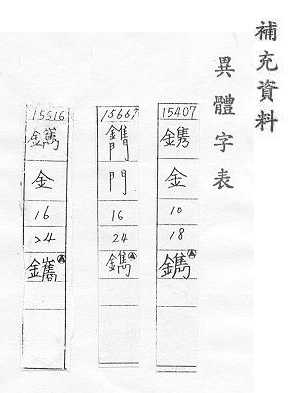 補充資料
異體字表
15407
金
10
18
鐫
A
15667
門
16
24
鐫
A
15516
金
16
24
A